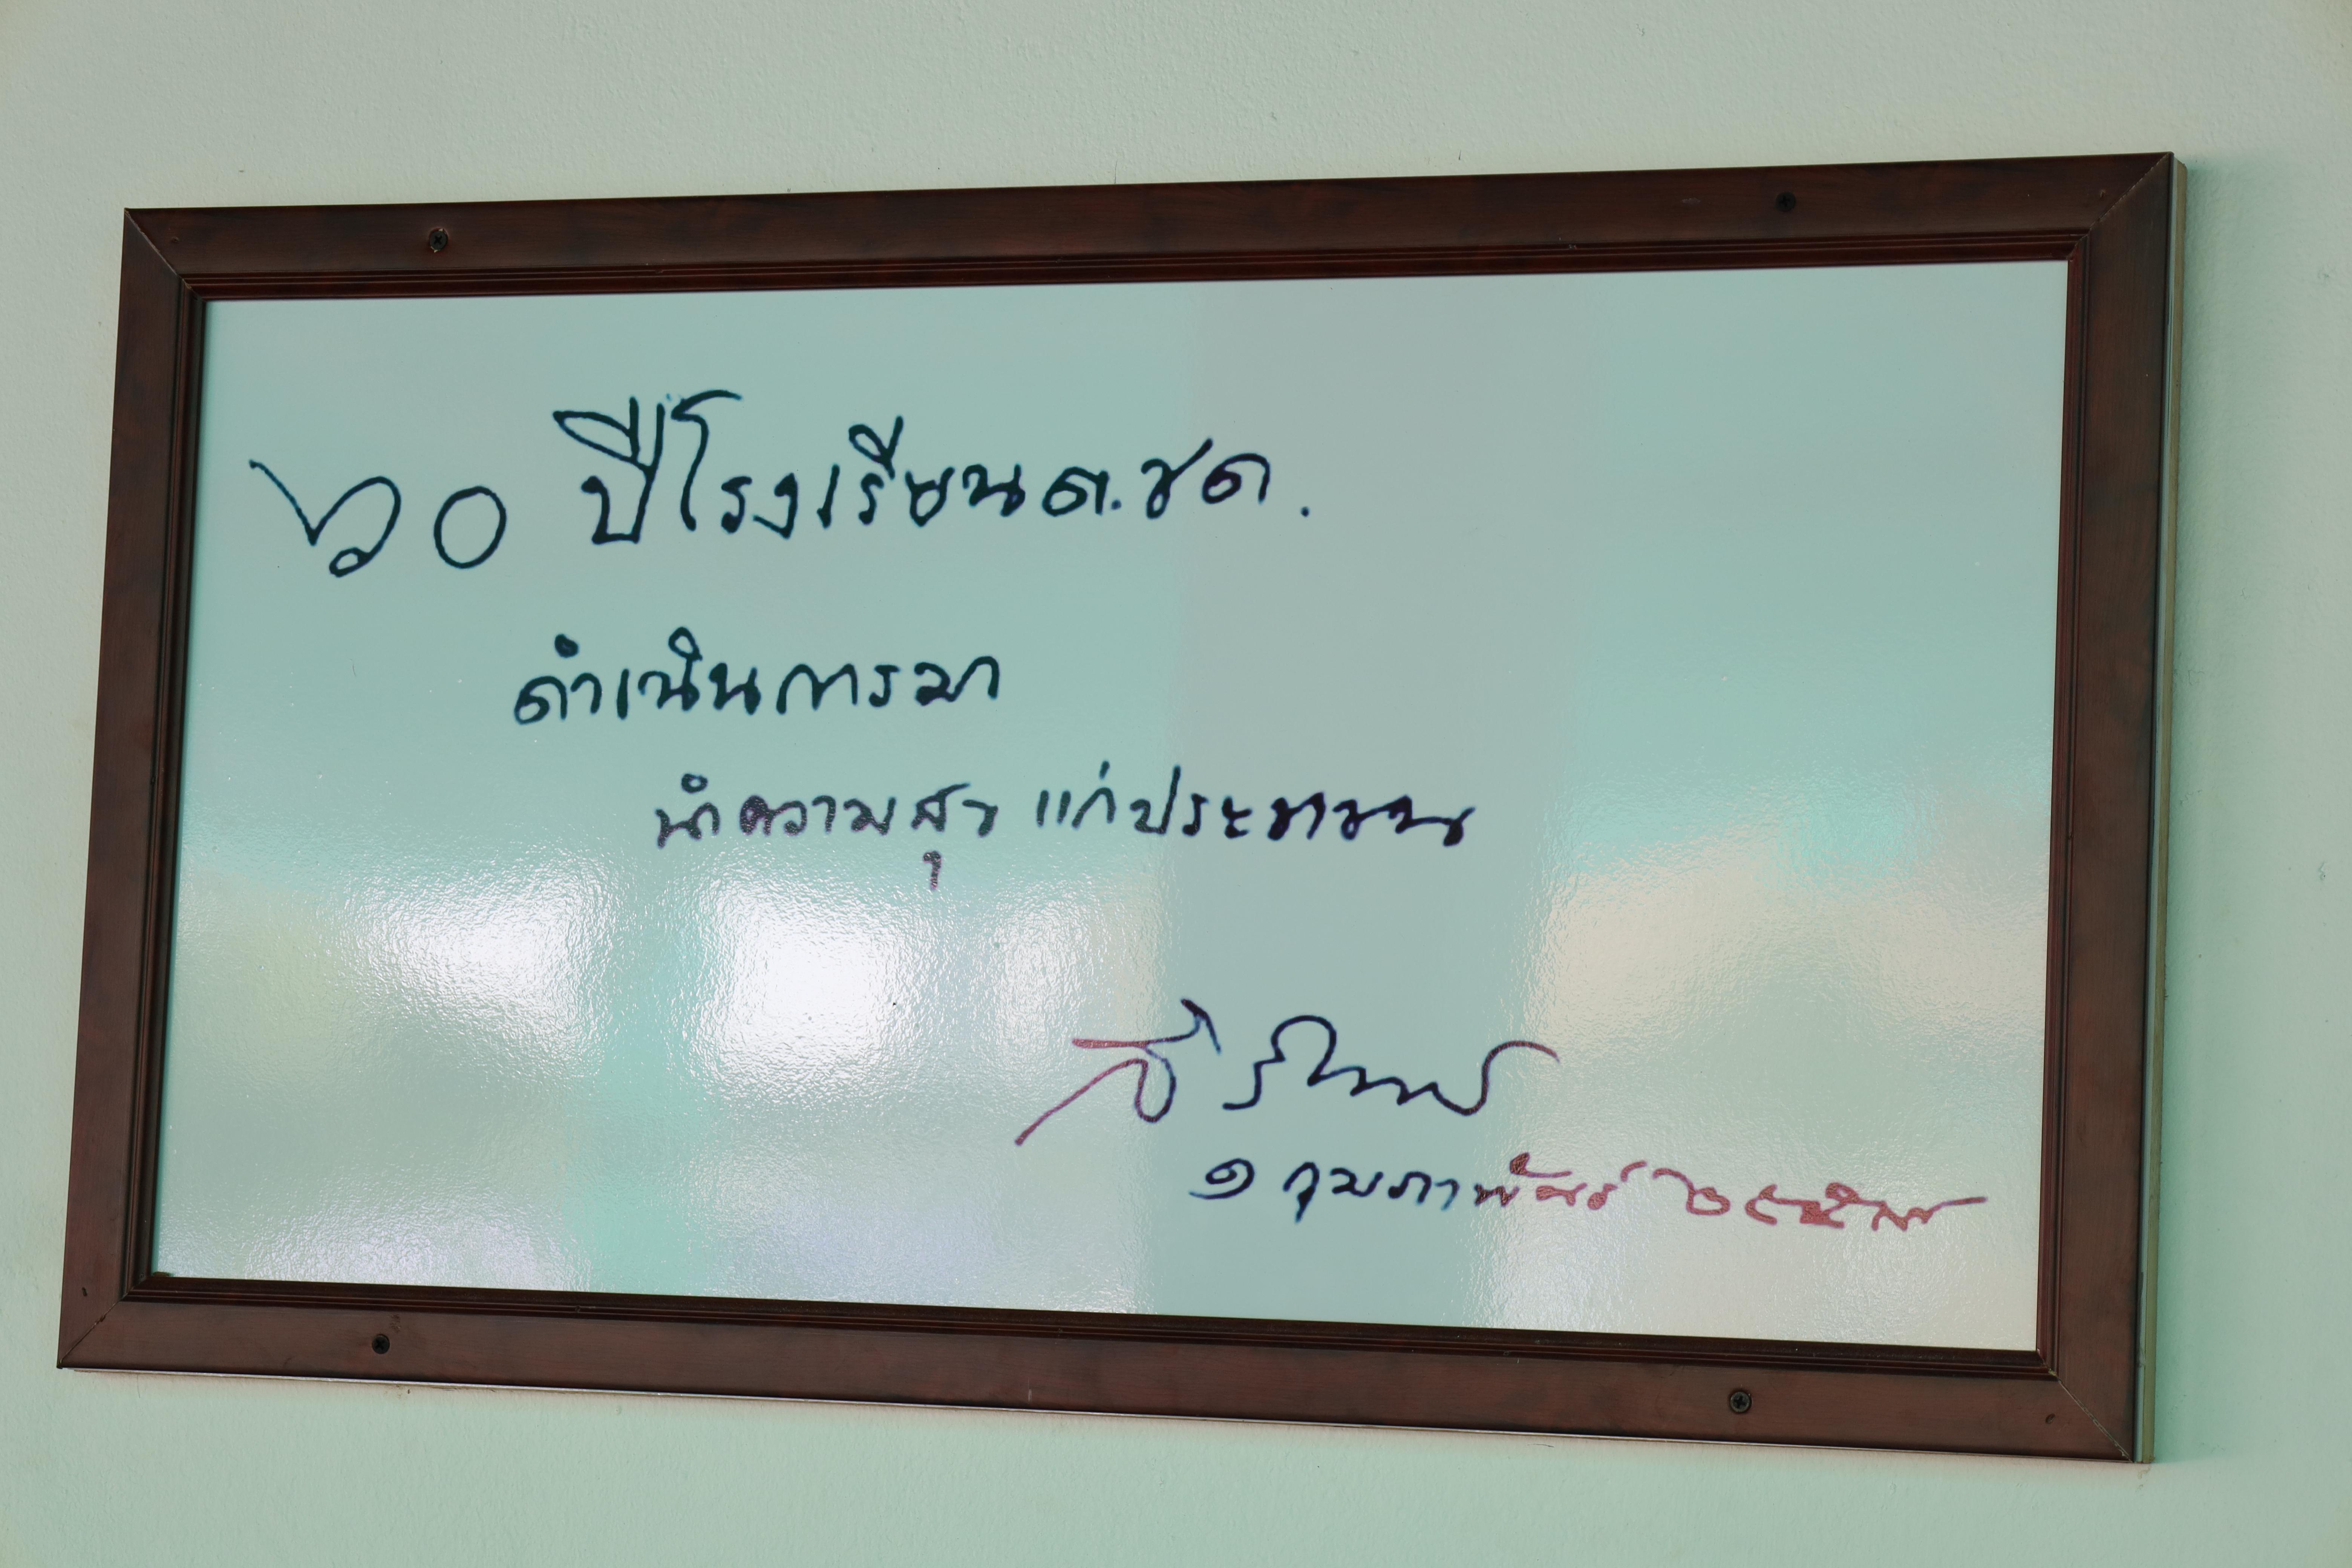 ๖๐ ปีโรงเรียนต.ชด.
ดำเนินการมา
นำความสุข แก่ประชาชน
สิรินธร
๑ กุมภาพันธ์ ๒๕๕๙